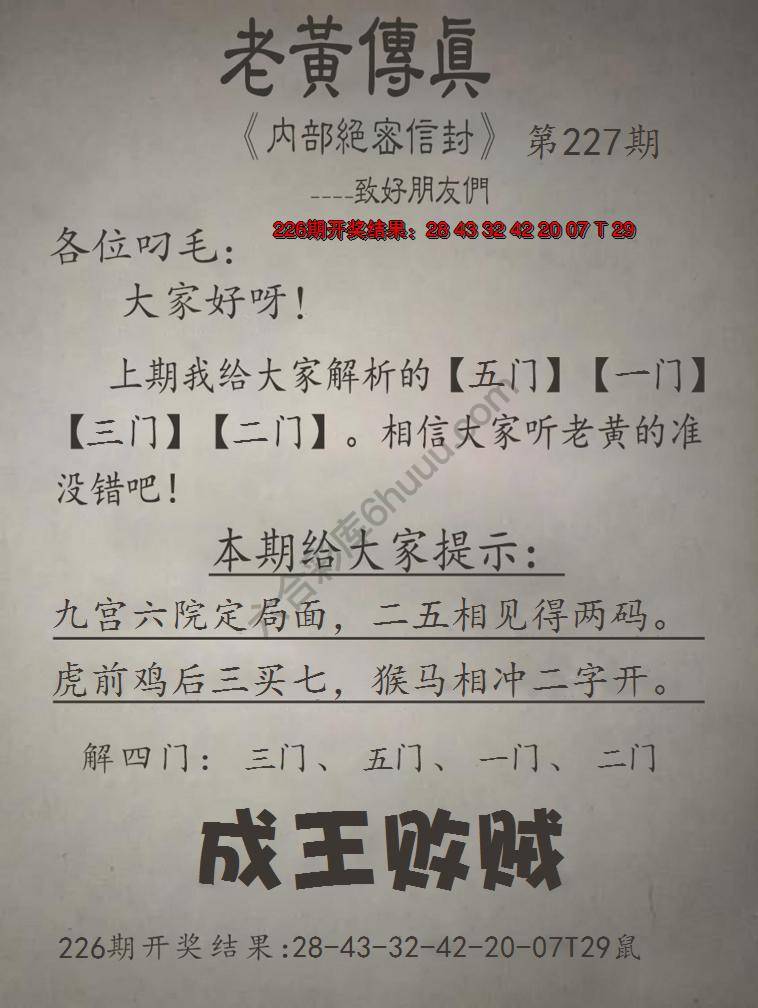 老黃傳眞
《内部絕密信封》 第227期
----致好朋友們
226期开奖结果：28 43 32 42 20 07 T 29
各位叼毛：
大家好呀！
上期我给大家解析的【五门】【一门】
【三门】【二门】。相信大家听老黄的准
没错吧！
本期给大家提示：
九宫六院定局面，二五相见得两码。
虎前鸡后三买七，猴马相冲二字开。
解四门： 三门、 五门、 一门、 二门
成王败贼
226期开奖结果:28-43-32-42-20-07T29鼠
六合彩库6huuu.com